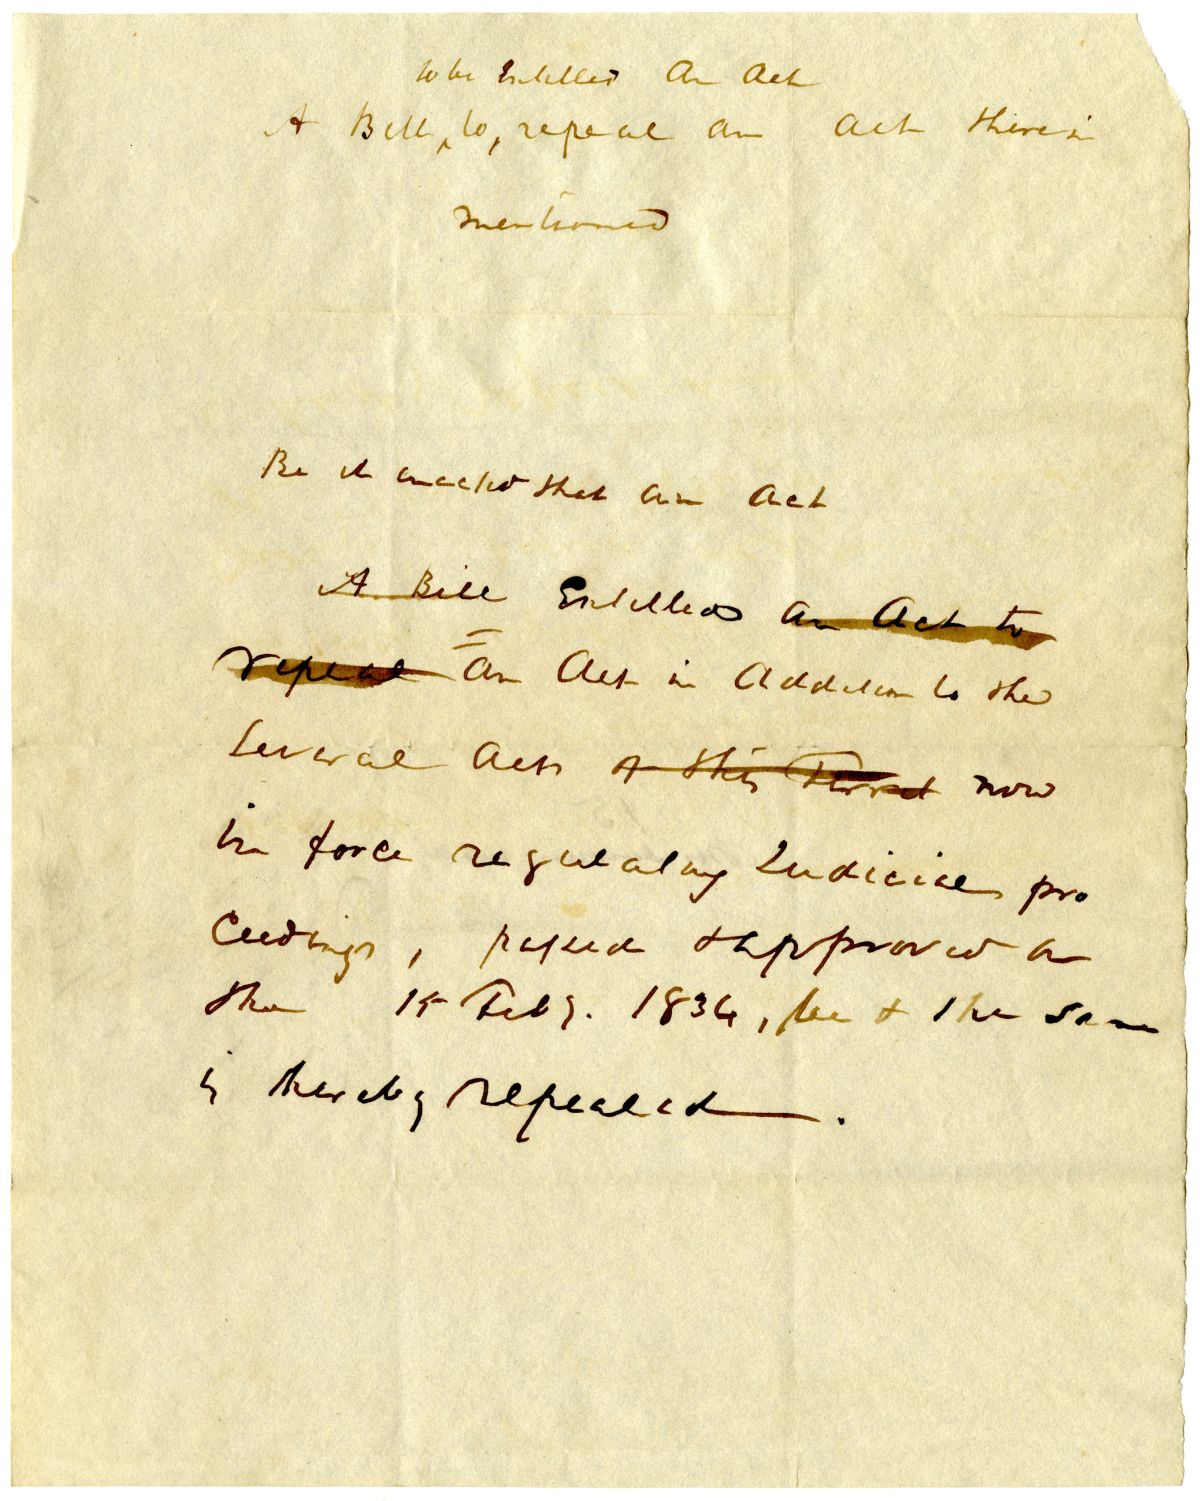 to be Entitled An Act
A Bill, to, repeal an act therein
mentioned
Be it enacted that an Act
A Bill Entitled an Act to
repeal "An Act in Addition to the
Several Acts of this Territ now
in force regulating Judicial pro
ceedings, passed & approved on
the 15 Feby. 1834, be & the same
is hereby repealed.